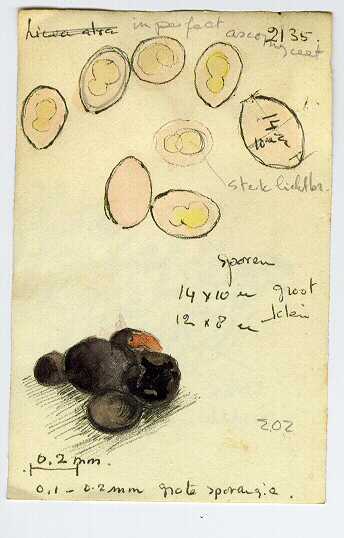 Licea alba imperfect
ascomyceet
2135.
14
10 µ
sterk lichtbr.
sporen
14 x 10 µ groot
12 x 8 µ klein
202
0.2 mm.
0.1 - 0.2 mm grote sporangia.